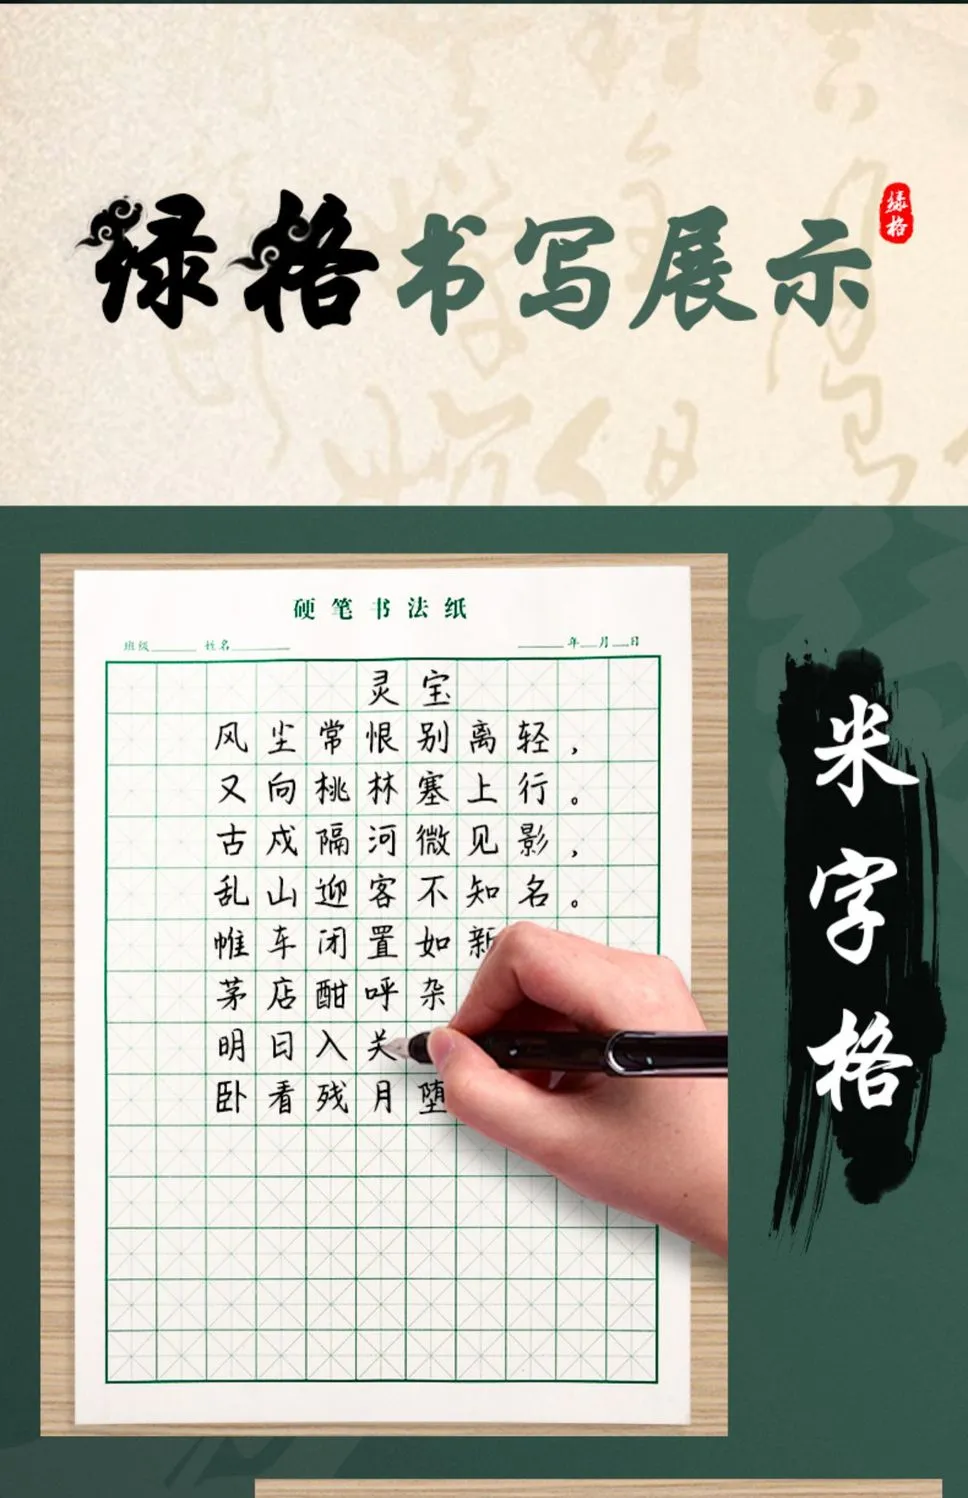 绿格书写展示
绿格
硬笔书法纸
班级 姓名 年 月 日
灵宝
风尘常恨别离轻，
又向桃林塞上行。
古戍隔河微见影，
乱山迎客不知名。
帷车闭置如新
茅店酣呼杂
明日入关
卧看残月堕
米字格